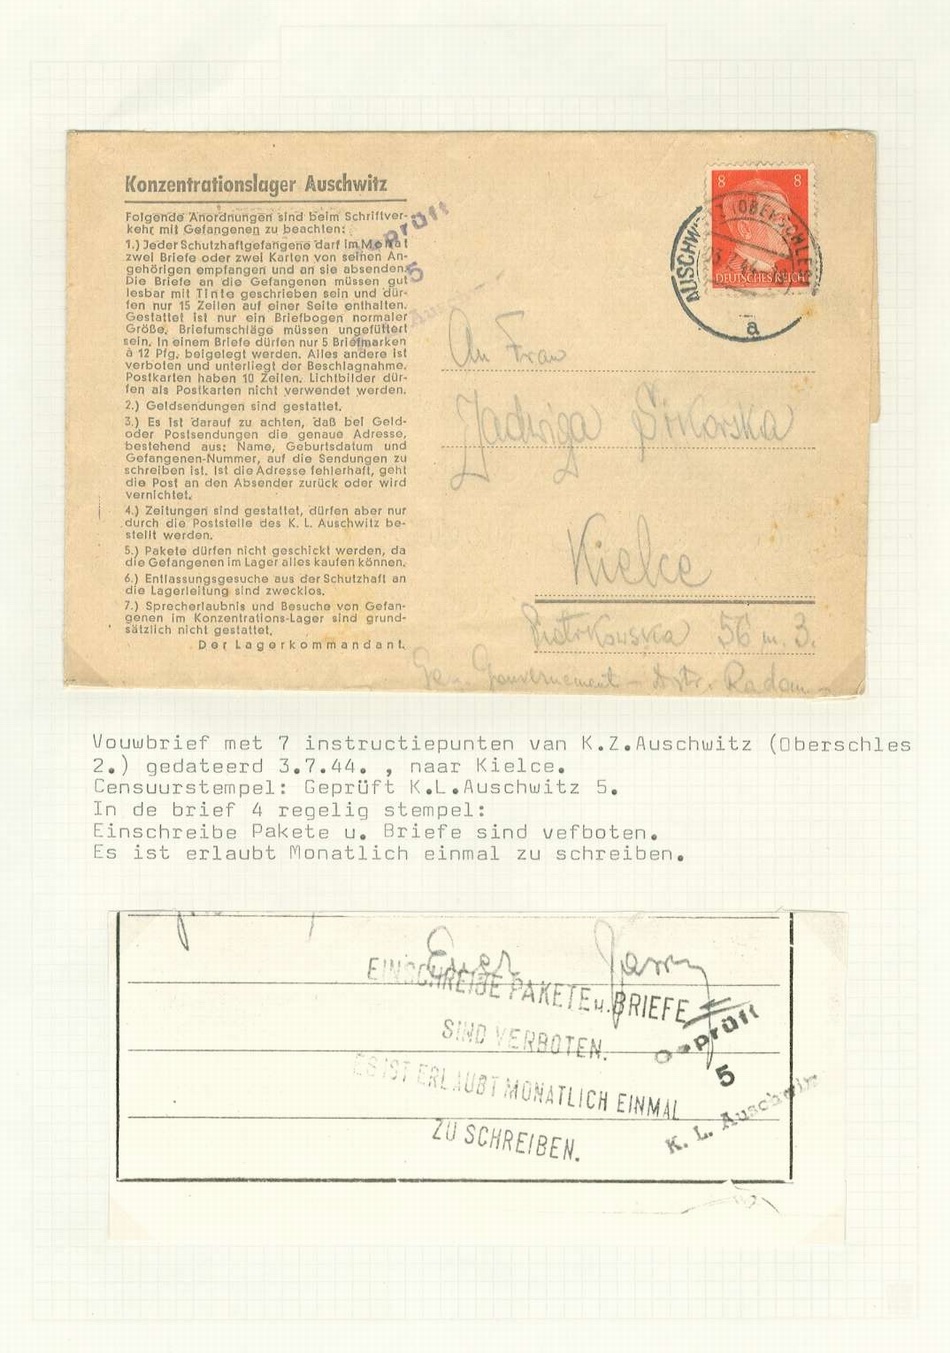 Konzentrationslager Auschwitz
Folgende Anordnungen sind beim Schriftver-
kehr mit Gefangenen zu beachten:
1.) Jeder Schutzhaftgefangene darf im Monat
zwei Briefe oder zwei Karten von seinen An-
gehörigen empfangen und an sie absenden.
Die Briefe an die Gefangenen müssen gut
lesbar mit Tinte geschrieben sein und dür-
fen nur 15 Zeilen auf einer Seite enthalten.
Gestattet ist nur ein Briefbogen normaler
Größe. Briefumschläge müssen ungefüttert
sein. In einem Briefe dürfen nur 5 Briefmarken
à 12 Pfg. beigelegt werden. Alles andere ist
verboten und unterliegt der Beschlagnahme.
Postkarten haben 10 Zeilen. Lichtbilder dür-
fen als Postkarten nicht verwendet werden.
2.) Geldsendungen sind gestattet.
3.) Es ist darauf zu achten, daß bei Geld-
oder Postsendungen die genaue Adresse,
bestehend aus: Name, Geburtsdatum und
Gefangenen-Nummer, auf die Sendungen zu
schreiben ist. Ist die Adresse fehlerhaft, geht
die Post an den Absender zurück oder wird
vernichtet.
4.) Zeitungen sind gestattet, dürfen aber nur
durch die Poststelle des K. L. Auschwitz be-
stellt werden.
5.) Pakete dürfen nicht geschickt werden, da
die Gefangenen im Lager alles kaufen können.
6.) Entlassungsgesuche aus der Schutzhaft an
die Lagerleitung sind zwecklos.
7.) Sprecherlaubnis und Besuche von Gefan-
genen im Konzentrations-Lager sind grund-
sätzlich nicht gestattet.
Der Lagerkommandant.
Geprüft
5
Auschwitz
8 8
DEUTSCHES REICH
AUSCHWITZ (OBERSCHLES)
a
An Frau
Jadwiga Sikorska
Kielce
Piotrkowska 56 m. 3.
Gen. Gouvernement - Distr. Radom
Vouwbrief met 7 instructiepunten van K.Z.Auschwitz (Oberschles
2.) gedateerd 3.7.44. , naar Kielce.
Censuurstempel: Geprüft K.L.Auschwitz 5.
In de brief 4 regelig stempel:
Einschreibe Pakete u. Briefe sind vefboten.
Es ist erlaubt Monatlich einmal zu schreiben.
Euer
EINSCHREIBE PAKETE u. BRIEFE
SIND VERBOTEN.
ES IST ERLAUBT MONATLICH EINMAL
ZU SCHREIBEN.
Geprüft
5
K. L. Auschwitz